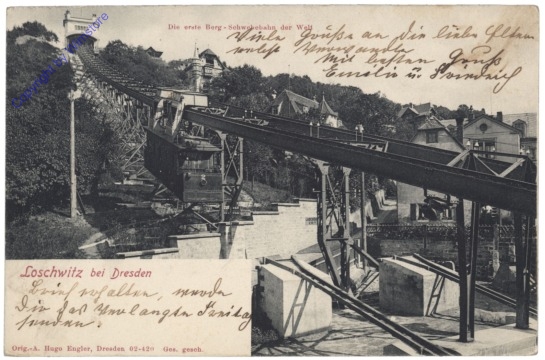 Die erste Berg-Schwebebahn der Welt
Viele Grüße an die liebe Eltern
Verwandte
Mit besten Gruß
Emilie u Friedrich
Loschwitz bei Dresden
Brief erhalten, werde
Dir das Verlangte Freitag
senden.
Orig.-A. Hugo Engler, Dresden 02-42 Ges. gesch.